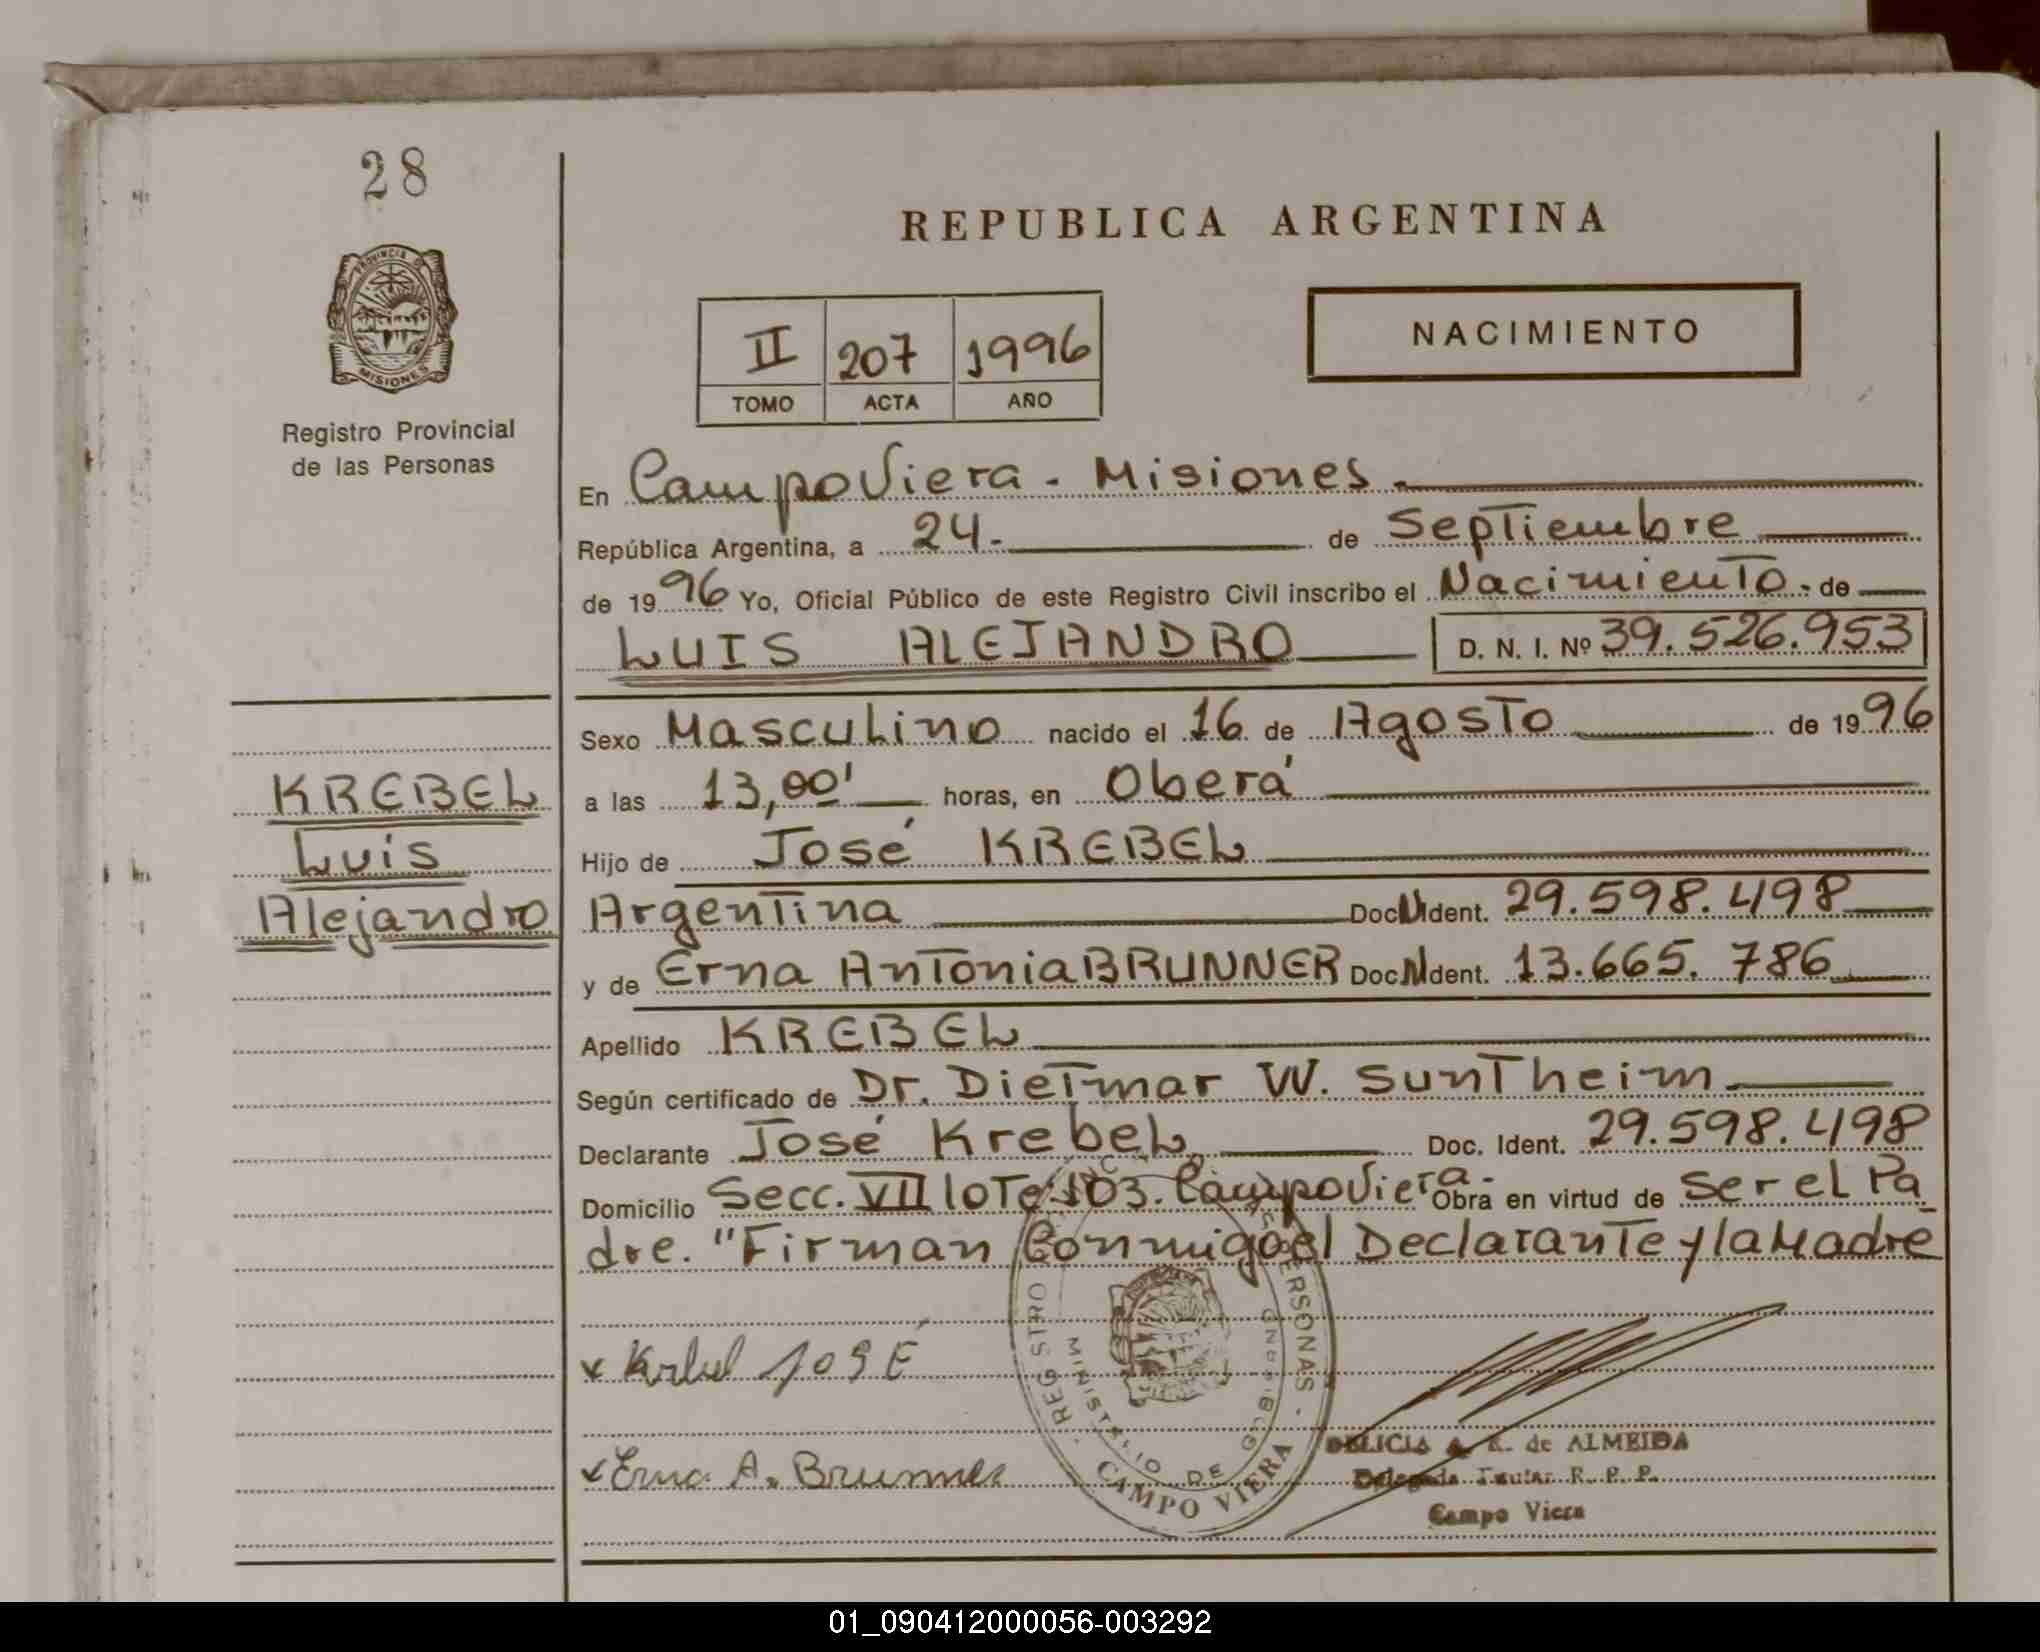 28
PROVINCIA DE
MISIONES
Registro Provincial
de las Personas
REPUBLICA ARGENTINA
II 207 1996
TOMO ACTA AÑO
NACIMIENTO
En Campo Viera - Misiones.
República Argentina, a 24. de Septiembre
de 1996 Yo, Oficial Público de este Registro Civil inscribo el Nacimiento - de
LUIS ALEJANDRO D. N. I. Nº 39.526.953
Sexo Masculino nacido el 16 de Agosto de 1996
a las 13,00' horas, en Oberá
Hijo de José KREBEL
Argentina Doc. N Ident. 29.598.498
y de Erna Antonia BRUNNER Doc. N Ident. 13.665.786
Apellido KREBEL
Según certificado de Dr. Dietmar W. Suntheim
Declarante José Krebel, Doc. Ident. 29.598.498
Domicilio Secc. VII lote 103. Campo Viera - Obra en virtud de Ser el Pa
dre. "Firman Conmigo el Declarante y la Madre
KREBEL
Luis
Alejandro
x Krebel JOSÉ
x Erna A. Brunner
REGISTRO PERSONAS -
MINISTERIO DE GOBIERNO
CAMPO VIERA
DELICIA A. K. de ALMEIDA
Delegada Titular R. P. P.
Campo Viera
01_090412000056-003292